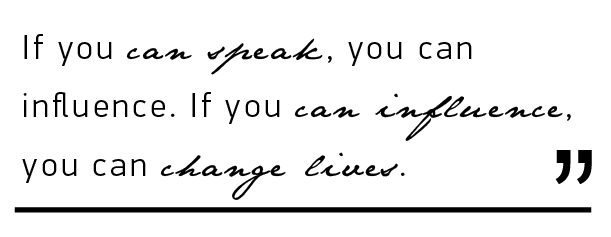 If you can speak, you can
influence. If you can influence,
you can change lives.
”